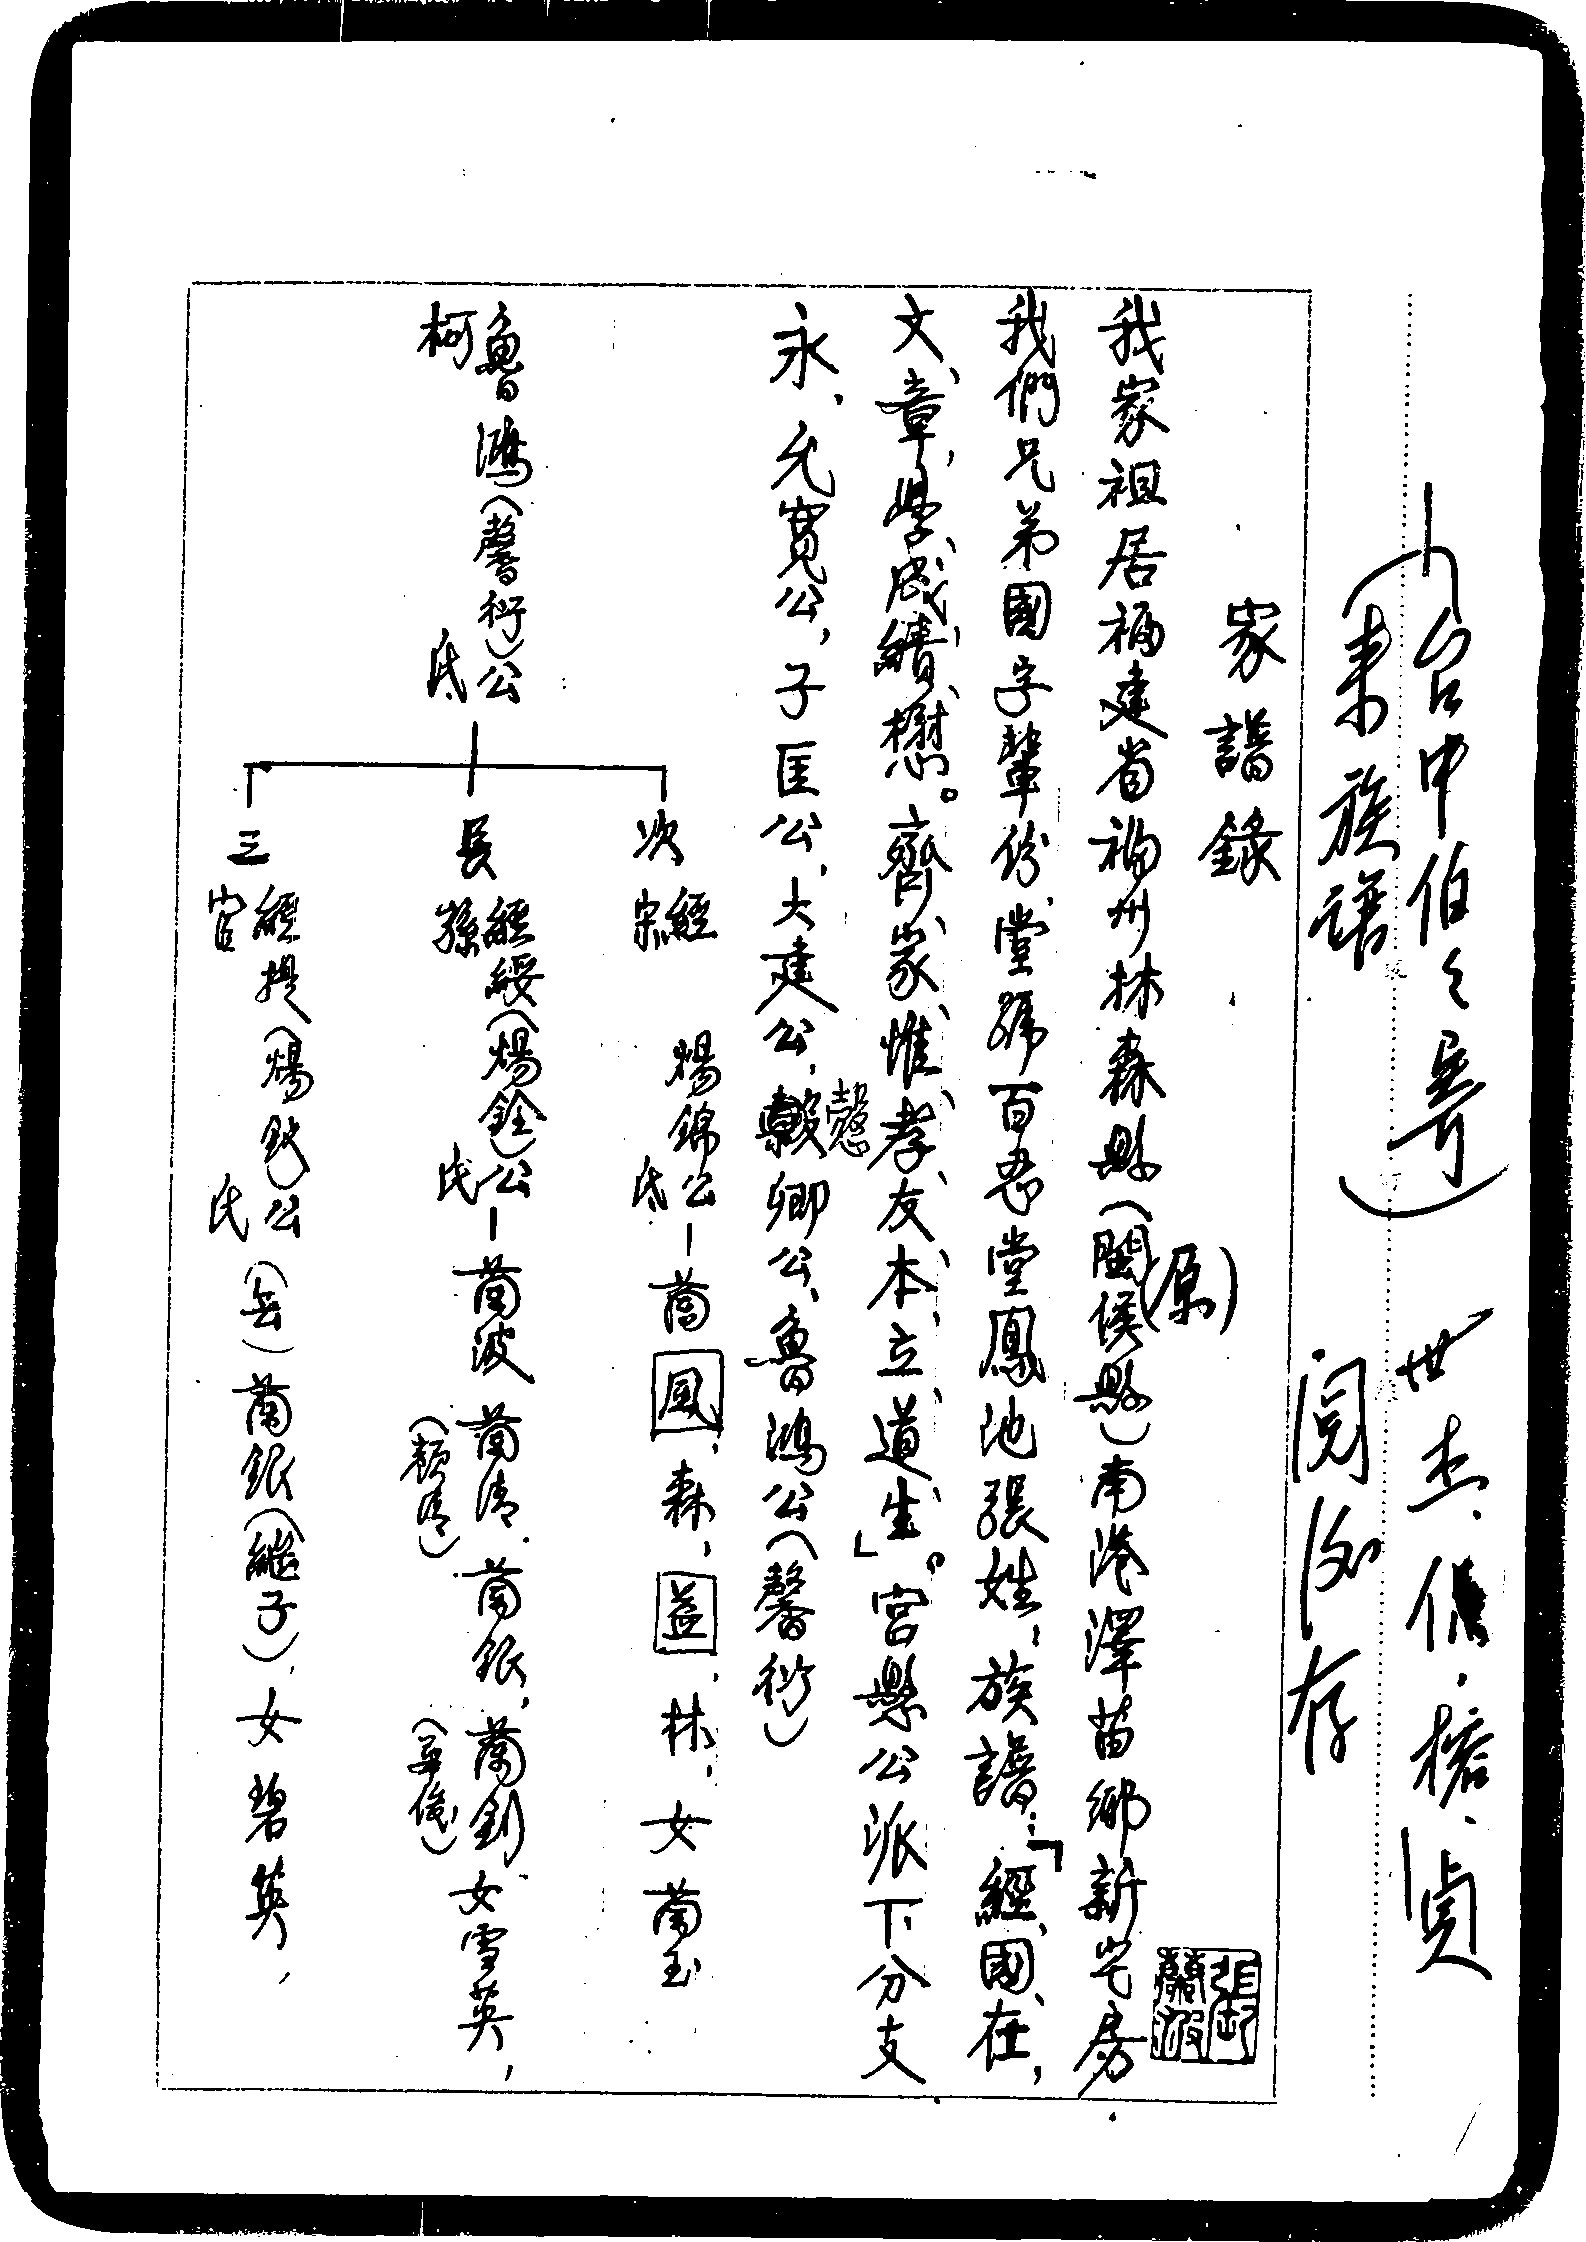 (台中伯之寄)
世杰、倩、榕、貞
(東族譜
閱後存
家譜錄
我家祖居福建省福州林森縣(閩侯縣)南港澤苗鄉新宅房
(原)
我們兄弟國字輩份、堂號百忍堂鳳池張姓,族譜:「經、國、在,
文、章、學、成、績、懋。齊、家、惟、孝、友、本、立、道、生」。宮懸公派下分支
永、允寬公,子匡公,大建公,毅卿公、魯鴻公(馨衍)
慤
魯鴻(馨衍)公
柯 氏
次 經 煬錦公-蘭鳳,森,益,林,女蘭玉
宋 氏
長 經綏(煬銓)公-蘭波 蘭清、蘭銀,蘭釗 女雪英,
孫 氏 (頴清)
三 經提(煬欽)公(無)蘭銀(繼子),女碧英,
官 氏
張
蘭波